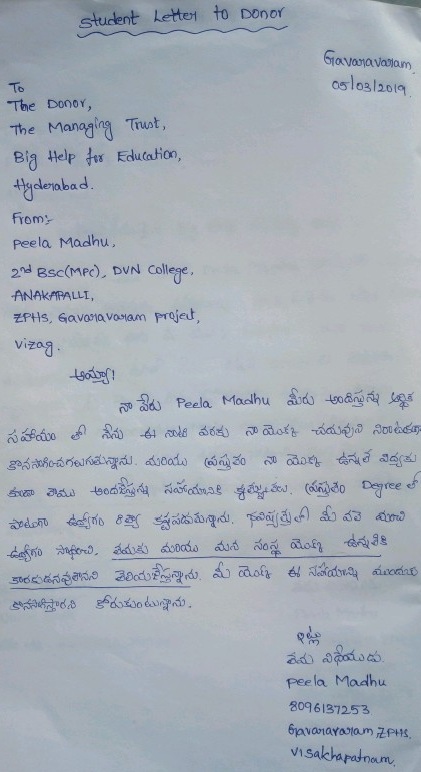 Student Letter to Donor
Gavaravaram,
05/03/2019.
To
The Donor,
The Managing Trust,
Big Help for Education,
Hyderabad.
From:-
Peela Madhu,
2nd BSC(MPC), DVN College,
ANAKAPALLI,
ZPHS, Gavaravaram project,
Vizag.
అమ్మా!
నా పేరు Peela Madhu మీరు అందిస్తున్న ఆర్థిక
సహాయం తో నేను ఈ నాటి వరకు నా యొక్క చదువుని
కొనసాగించగలుగుతున్నాను. మరియు ప్రస్తుతం నా యొక్క ఉన్నత విద్యకు
కూడా తమరు అందజేస్తున్న సహాయానికి కృతజ్ఞతలు. ప్రస్తుతం Degree తో
పాటుగా ఉద్యోగం కష్టపడుతున్నాను. భవిష్యత్తులో మీ వలె మంచి
ఉద్యోగం సాధించి, తమకు మరియు మన సంస్థ యొక్క ఉన్నతికి
కారకుడనవుతానని తెలియజేస్తున్నాను. మీ యొక్క ఈ సహాయాన్ని ముందుకు
కొనసాగిస్తారని కోరుకుంటున్నాను.
ఇట్లు
తమ విధేయుడు.
Peela Madhu
8096137253
Gavaravaram, ZPHS,
Visakhapatnam.